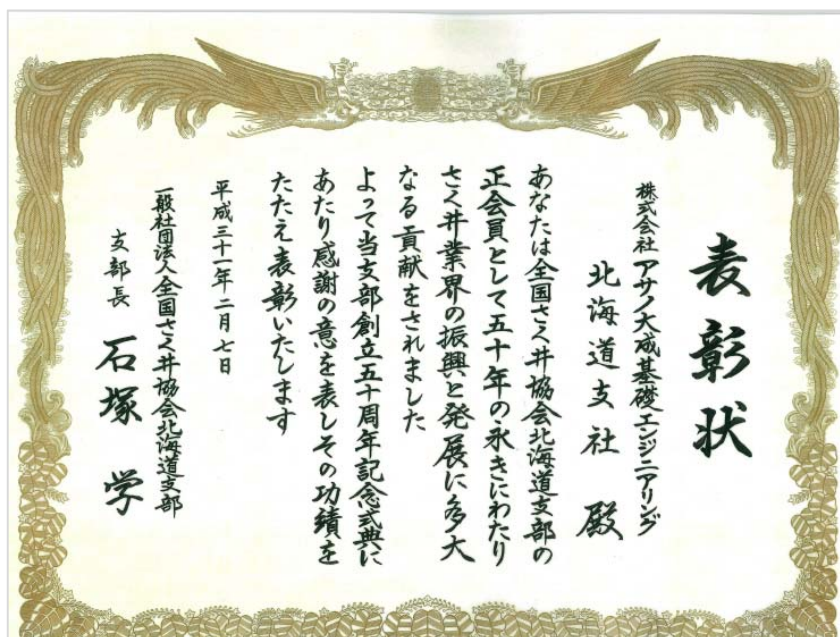 表彰状
株式会社アサノ大成基礎エンジニアリング
北海道支社 殿
あなたは全国さく井協会北海道支部の
正会員として五十年の永きにわたり
さく井業界の振興と発展に多大
なる貢献をされました
よって当支部創立五十周年記念式典に
あたり感謝の意を表しその功績を
たたえ表彰いたします
平成三十一年二月七日
一般社団法人全国さく井協会北海道支部
支部長 石塚 学